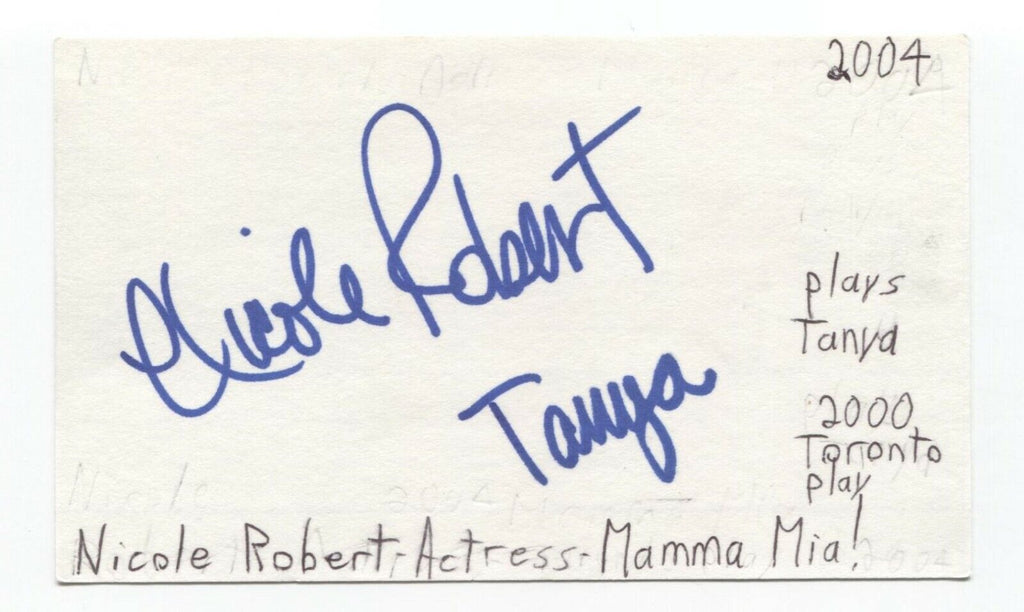 2004
Nicole Robert
Tanya
plays
Tanya
2000
Toronto
play
Nicole Robert-Actress-Mamma Mia!